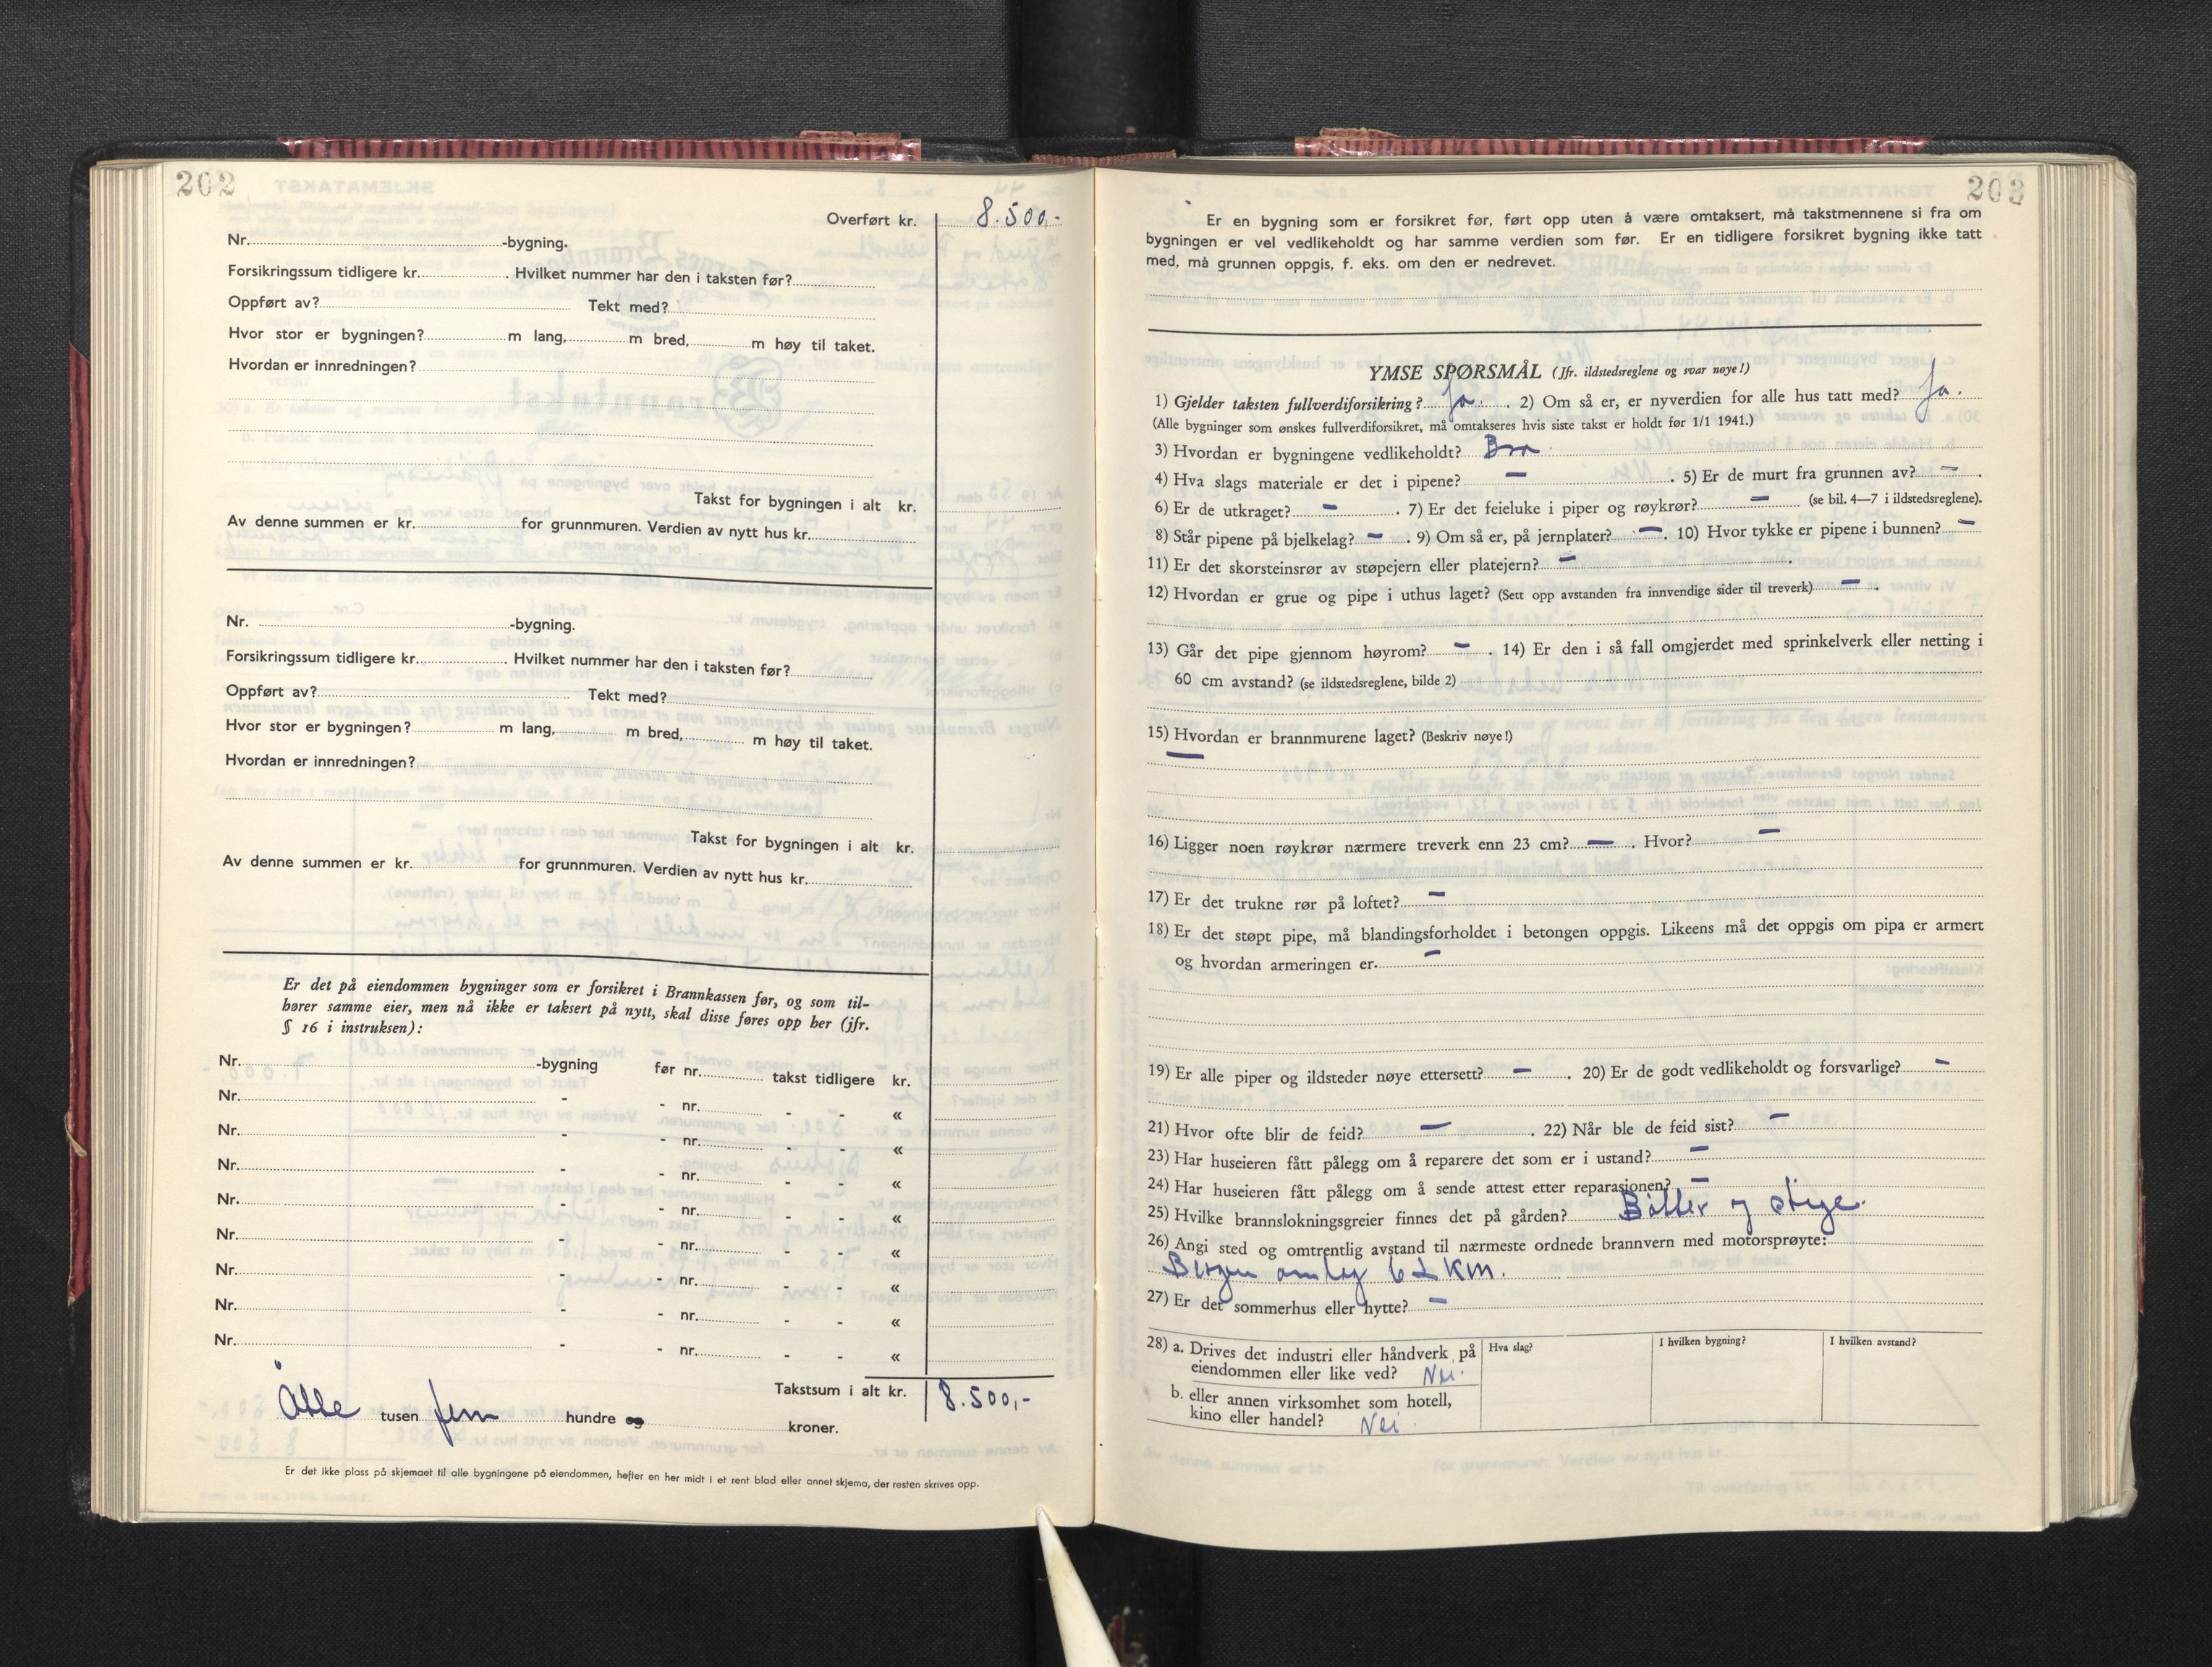 202
Overført kr. 8.500,-
Nr. -bygning.
Forsikringssum tidligere kr. . Hvilket nummer har den i taksten før?
Oppført av? Tekt med?
Hvor stor er bygningen? m lang, m bred, m høy til taket.
Hvordan er innredningen?
Takst for bygningen i alt kr.
Av denne summen er kr. for grunnmuren. Verdien av nytt hus kr.
Nr. -bygning.
Forsikringssum tidligere kr. . Hvilket nummer har den i taksten før?
Oppført av? Tekt med?
Hvor stor er bygningen? m lang, m bred, m høy til taket.
Hvordan er innredningen?
Takst for bygningen i alt kr.
Av denne summen er kr. for grunnmuren. Verdien av nytt hus kr.
Er det på eiendommen bygninger som er forsikret i Brannkassen før, og som til-
hører samme eier, men nå ikke er taksert på nytt, skal disse føres opp her (jfr.
§ 16 i instruksen):
Nr. -bygning før nr. takst tidligere kr.
Nr. - - nr. - - «
Nr. - - nr. - - «
Nr. - - nr. - - «
Nr. - - nr. - - «
Nr. - - nr. - - «
Nr. - - nr. - - «
Nr. - - nr. - - «
Nr. - - nr. - - «
Takstsum i alt kr. 8.500,-
Åtte tusen fem hundre og kroner.
Er det ikke plass på skjemaet til alle bygningene på eiendommen, hefter en her midt i et rent blad eller annet skjema, der resten skrives opp.
203
Er en bygning som er forsikret før, ført opp uten å være omtaksert, må takstmennene si fra om
bygningen er vel vedlikeholdt og har samme verdien som før. Er en tidligere forsikret bygning ikke tatt
med, må grunnen oppgis, f. eks. om den er nedrevet.
YMSE SPØRSMÅL (Jfr. ildstedsreglene og svar nøye!)
1) Gjelder taksten fullverdiforsikring? Ja. . 2) Om så er, er nyverdien for alle hus tatt med? Ja.
(Alle bygninger som ønskes fullverdiforsikret, må omtakseres hvis siste takst er holdt før 1/1 1941.)
3) Hvordan er bygningene vedlikeholdt? Bra
4) Hva slags materiale er det i pipene? — . 5) Er de murt fra grunnen av? — .
6) Er de utkraget? — . 7) Er det feieluke i piper og røykrør? — (se bil. 4—7 i ildstedsreglene).
8) Står pipene på bjelkelag? — . 9) Om så er, på jernplater? — . 10) Hvor tykke er pipene i bunnen? —
11) Er det skorsteinsrør av støpejern eller platejern? — .
12) Hvordan er grue og pipe i uthus laget? (Sett opp avstanden fra innvendige sider til treverk) — .
13) Går det pipe gjennom høyrom? — . 14) Er den i så fall omgjerdet med sprinkelverk eller netting i
60 cm avstand? (se ildstedsreglene, bilde 2)
15) Hvordan er brannmurene laget? (Beskriv nøye!)
—
16) Ligger noen røykrør nærmere treverk enn 23 cm? — . Hvor? —
17) Er det trukne rør på loftet? —
18) Er det støpt pipe, må blandingsforholdet i betongen oppgis. Likeens må det oppgis om pipa er armert
og hvordan armeringen er. —
19) Er alle piper og ildsteder nøye ettersett? — . 20) Er de godt vedlikeholdt og forsvarlige? —
21) Hvor ofte blir de feid? — . 22) Når ble de feid sist? —
23) Har huseieren fått pålegg om å reparere det som er i ustand? —
24) Har huseieren fått pålegg om å sende attest etter reparasjonen? —
25) Hvilke brannslokningsgreier finnes det på gården? Bøtter og stige.
26) Angi sted og omtrentlig avstand til nærmeste ordnede brannvern med motorsprøyte:
Bergen omlag 62 km.
27) Er det sommerhus eller hytte? —
28) a. Drives det industri eller håndverk på
eiendommen eller like ved? Nei.
b. eller annen virksomhet som hotell,
kino eller handel? Nei.
Hva slag?
I hvilken bygning?
I hvilken avstand?